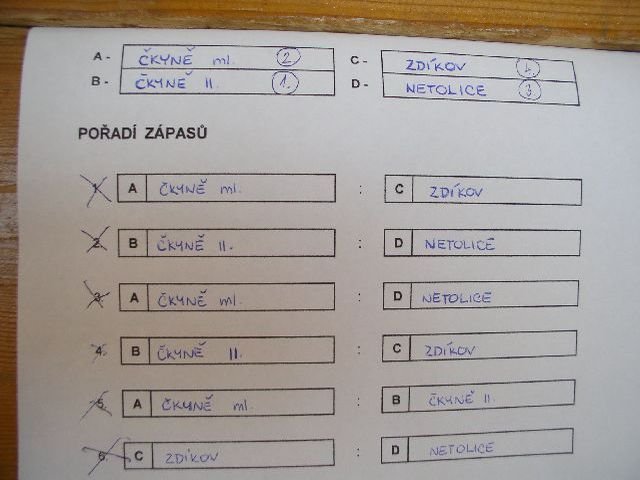 A - ČKYNĚ ml. 2 C - ZDÍKOV 4.
B - ČKYNĚ II 1. D - NETOLICE 3
POŘADÍ ZÁPASŮ
1. A ČKYNĚ ml. : C ZDÍKOV
2. B ČKYNĚ II. : D NETOLICE
3. A ČKYNĚ ml. : D NETOLICE
4. B ČKYNĚ II. : C ZDÍKOV
5. A ČKYNĚ ml. : B ČKYNĚ II.
6. C ZDÍKOV : D NETOLICE